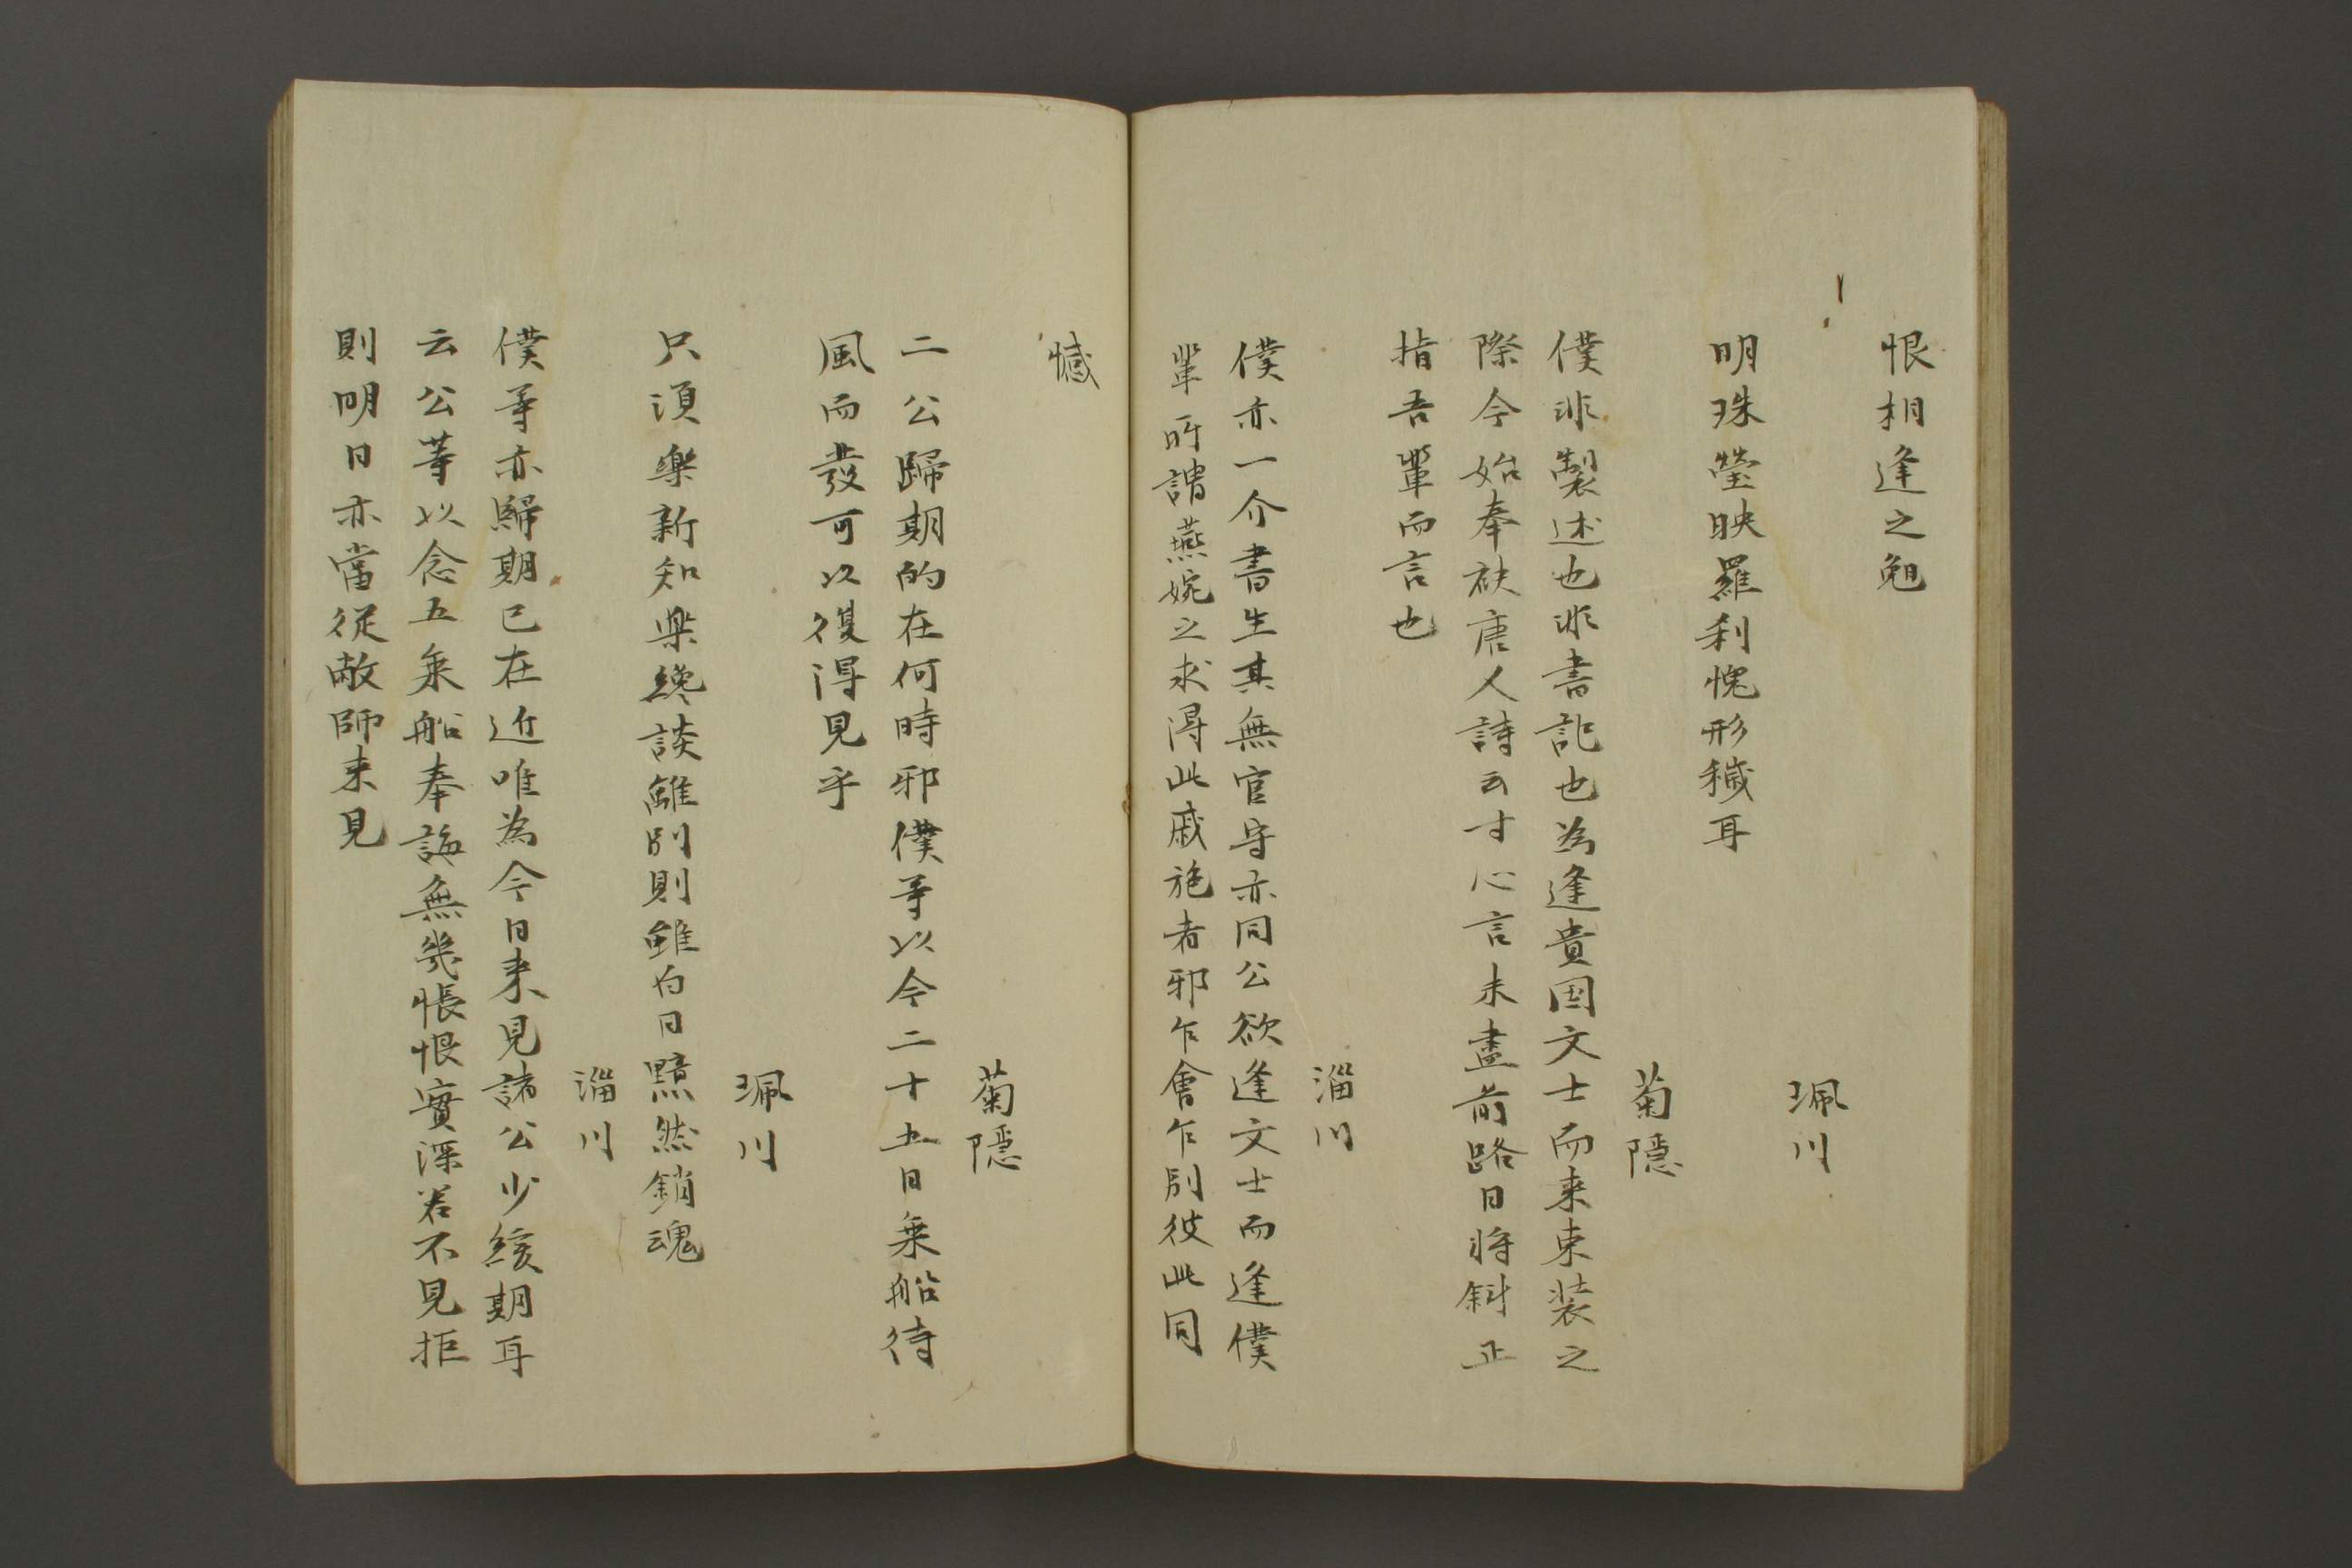 恨相逢之勉
珮川
明珠瑩映羅刹愧形穢耳
菊隱
僕非製述也非書記也為逢貴国文士而来束装之
際今始奉袂唐人詩云寸心言未盡前路日将斜正
指吾輩而言也
淄川
僕亦一介書生其無官守亦同公欲逢文士而逢僕
輩所謂燕婉之求得此戚施者邪乍會乍別彼此同
憾
菊隱
二公歸期的在何時邪僕等以今二十五日乗船待
風而發可以復得見乎
珮川
只須樂新知樂纔談離別則雖白日黯然銷魂
淄川
僕等亦歸期已在近唯為今日来見諸公少緩期耳
云公等以念五乗船奉誨無幾悵恨實深若不見拒
則明日亦當従敝師来見